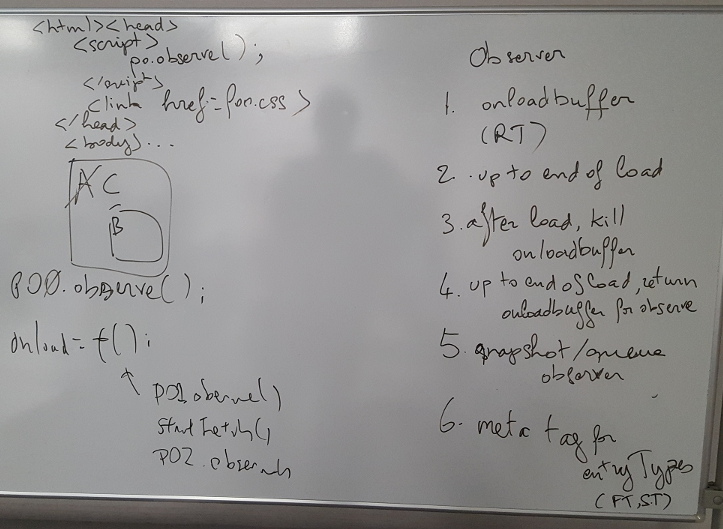 <html><head>
<script>
po.observe();
</script>
<link href=foo.css>
</head>
<body>...
A C
B
PO0.observe();
onload=f();
PO1.observe()
startFetch()
PO2.observe
Observer
1. onloadbuffer
(RT)
2. up to end of load
3. after load, kill
onloadbuffer
4. up to end of load, return
onloadbuffer for observe
5. snapshot/queue
observer
6. meta tag for
entryTypes
(PT,ST)